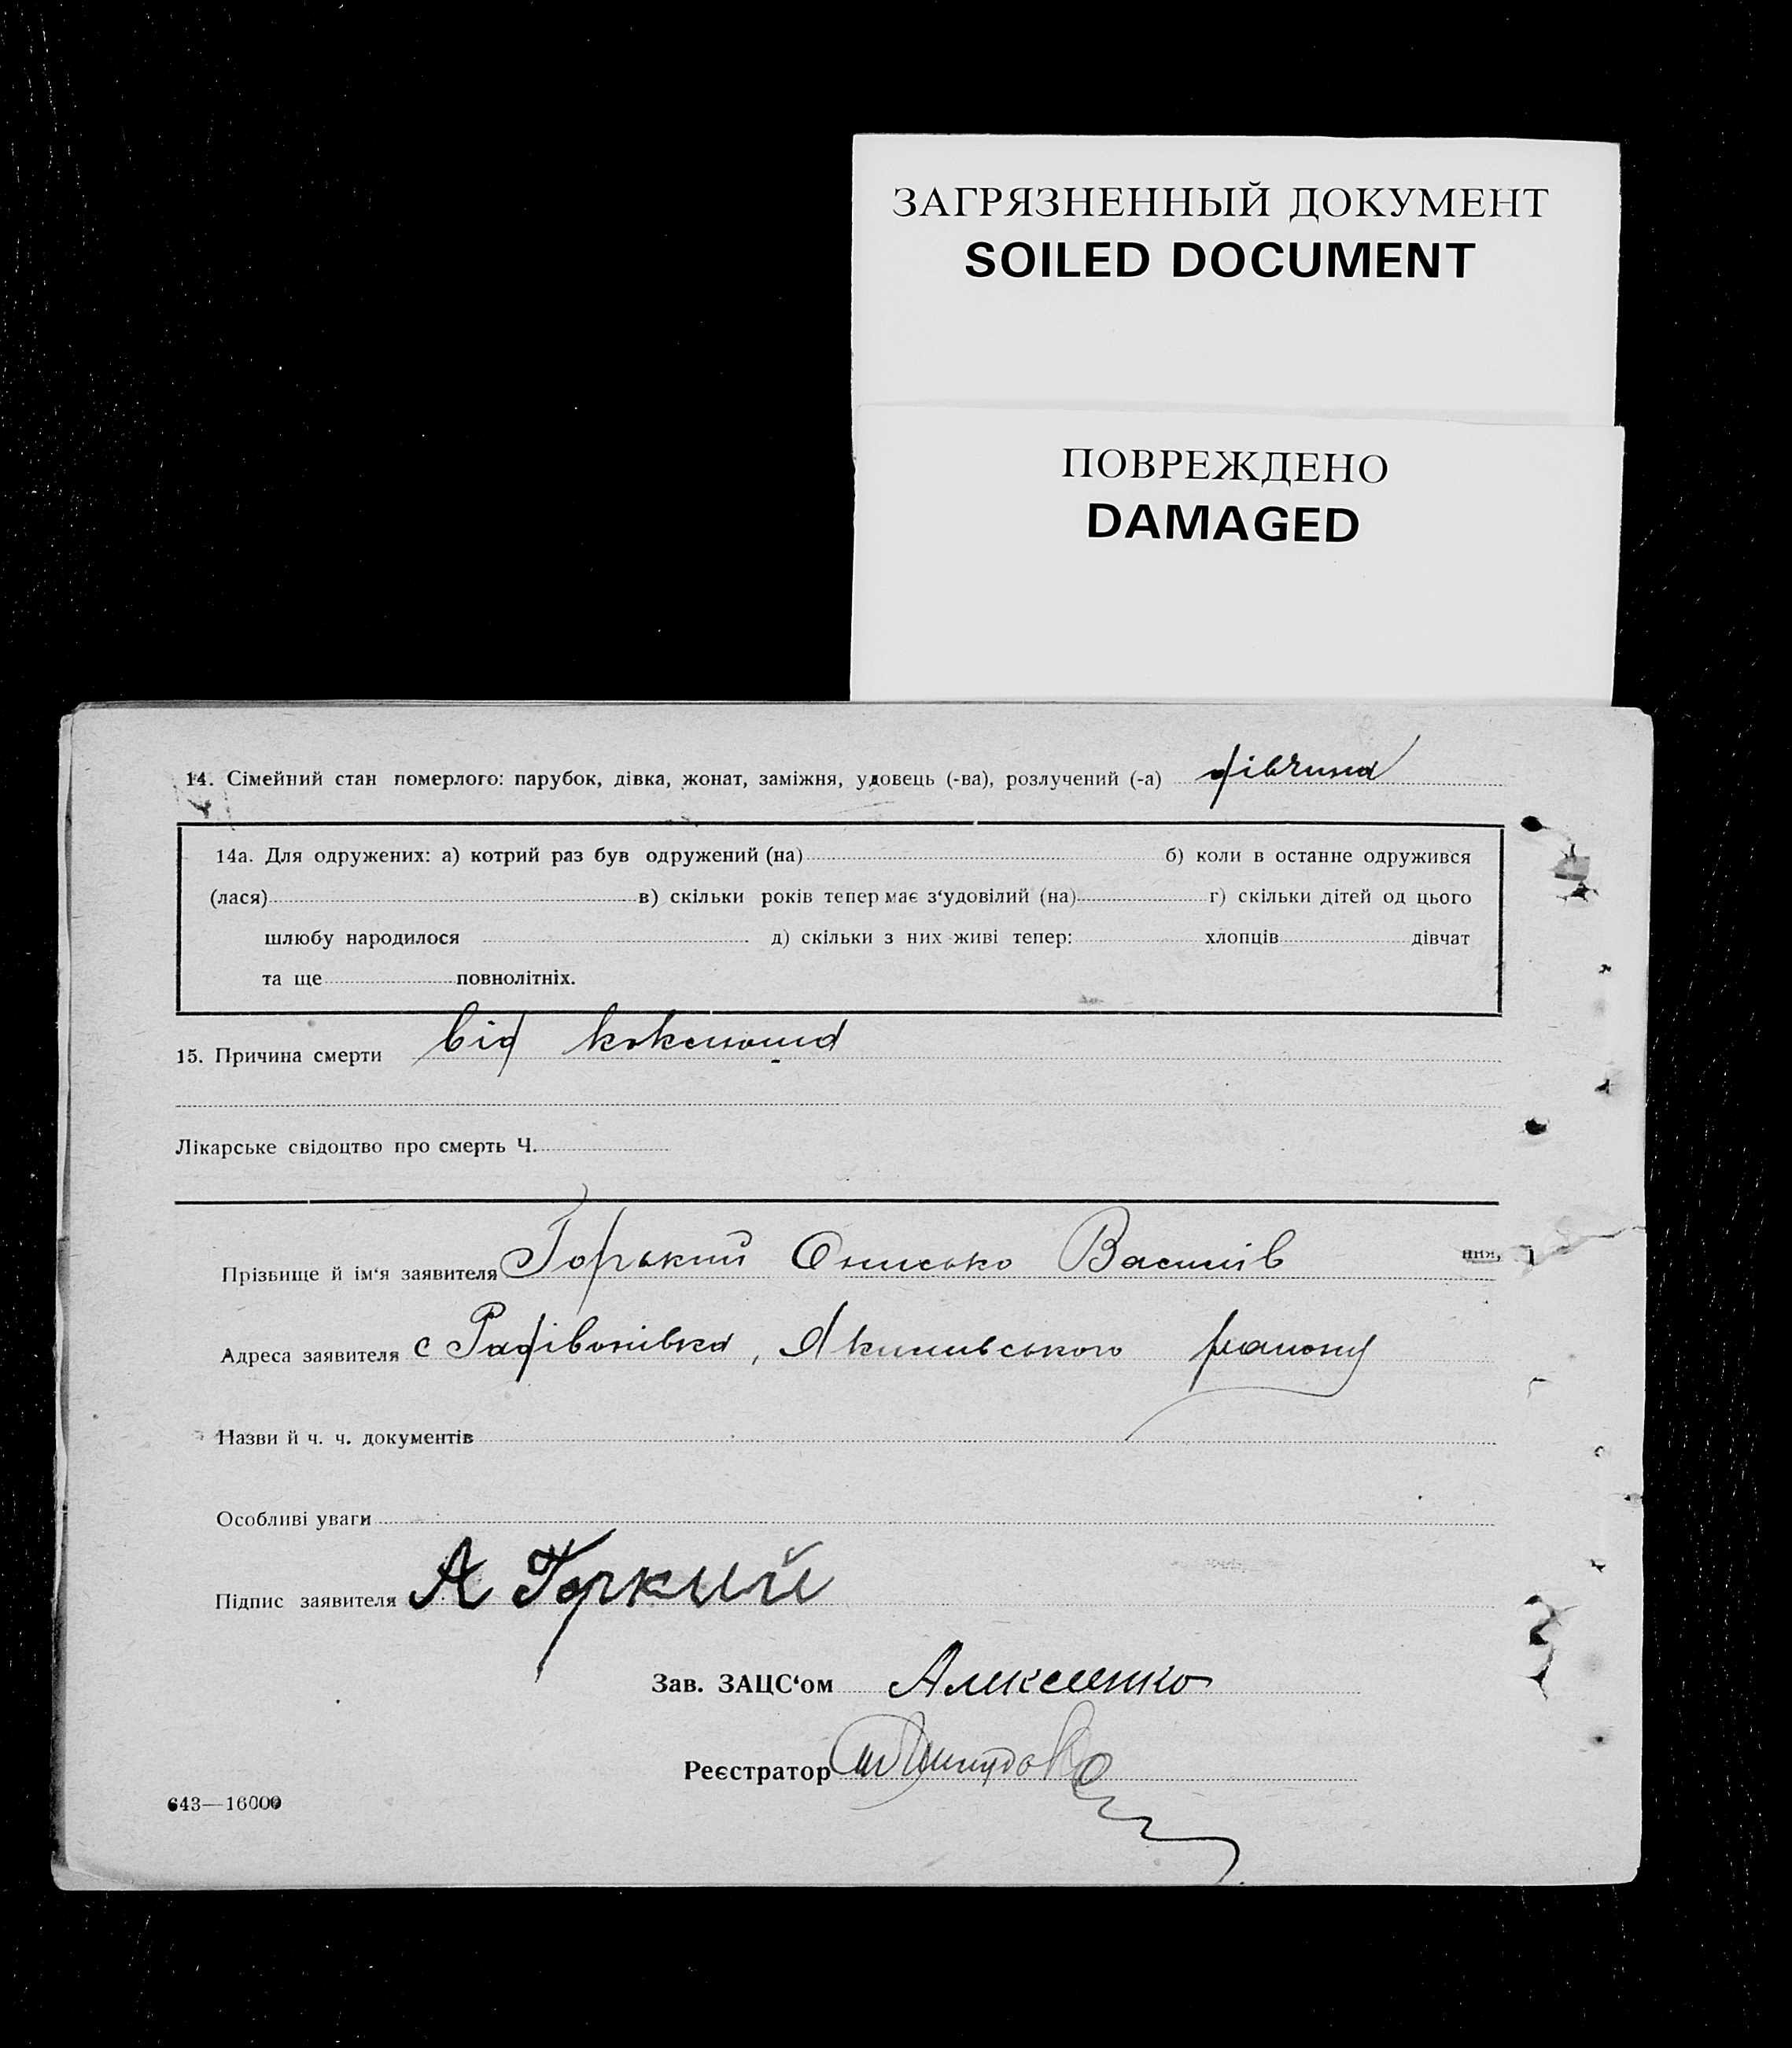 ЗАГРЯЗНЕННЫЙ ДОКУМЕНТ
SOILED DOCUMENT
ПОВРЕЖДЕНО
DAMAGED
14. Сімейний стан померлого: парубок, дівка, жонат, заміжня, удовець (-ва), розлучений (-а) дівчина
14а. Для одружених: а) котрий раз був одружений (на) б) коли в останне одружився
(лася) в) скільки років тепер має з‘удовілий (на) г) скільки дітей од цього
шлюбу народилося д) скільки з них живі тепер: хлопців дівчат
та ще повнолітніх.
15. Причина смерти від коклюша
Лікарське свідоцтво про смерть Ч.
Прізвище й ім‘я заявителя Горький Онисько Василів
ния,
Адреса заявителя с Радівонівка, Якимівського району
Назви й ч. ч. документів
Особливі уваги
Підпис заявителя А Горкий
Зав. ЗАЦС‘ом Алексенко
Реєстратор
643—16000